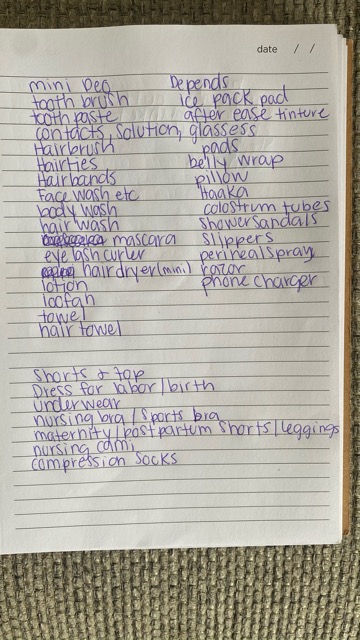 date / /
mini Deo
tooth brush
tooth paste
contacts, solution, glassess
Hairbrush
Hairties
Hairbands
Face wash etc
body wash
hair wash
mascara
eye lash curler
hair dryer (mini)
lotion
loofah
towel
hair towel
Depends
ice pack pad
after ease tinture
pads
belly wrap
pillow
Haaka
colostrum tubes
showersandals
slippers
perineal spray
razor
phone charger
Shorts & top
Dress for labor/birth
underwear
nursing bra / sports bra
maternity/postpartum shorts/leggings
nursing cami
compression socks